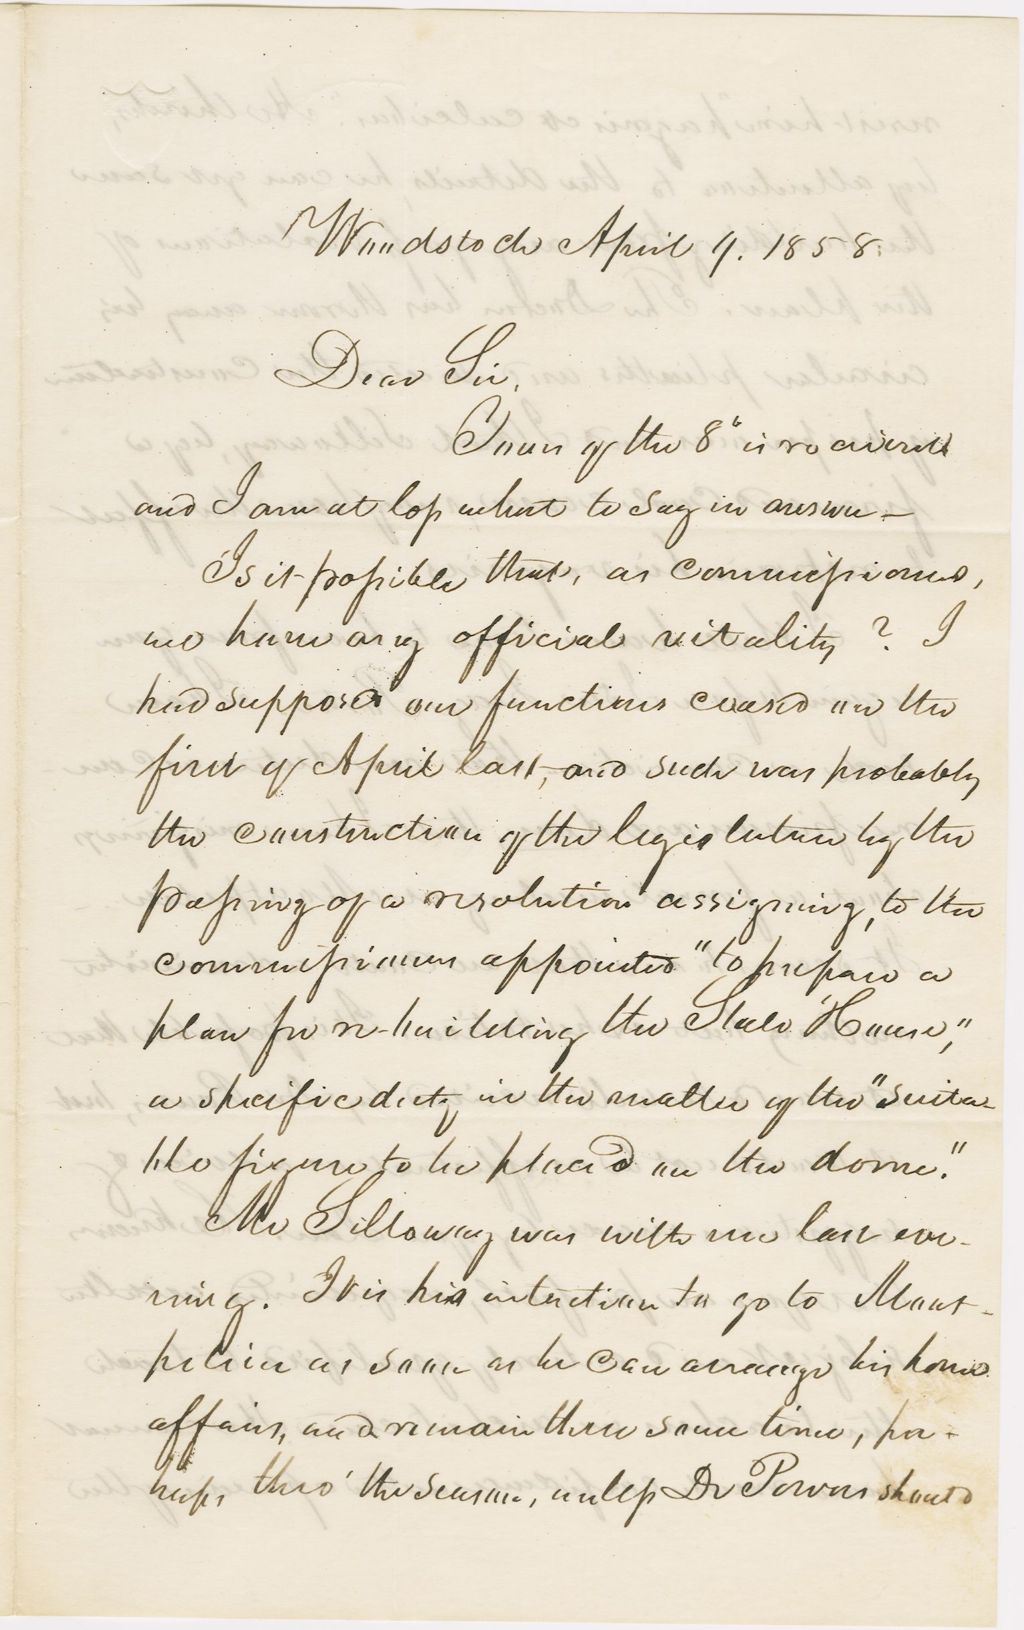 Woodstock April 9. 1858.
Dear Sir,
Yours of the 8" is received
and I am at loss what to say in answer-
Is it possible that, as commissioners,
we have any official vitality? I
had supposed our functions ceased on the
first of April last, and such was probably
the construction of the legislature by the
passing of a resolution assigning, to the
commissioners appointed "to prepare a
plan for re-building the State House,"
a specific duty in the matter of the "suita-
ble figure to be placed on the dome."
Mr Silloway was with me last eve-
ning. It is his intention to go to Mont-
pelier as soon as he can arrange his home
affairs, and remain there some time, per-
haps thro' the season, unless Dr Powers should